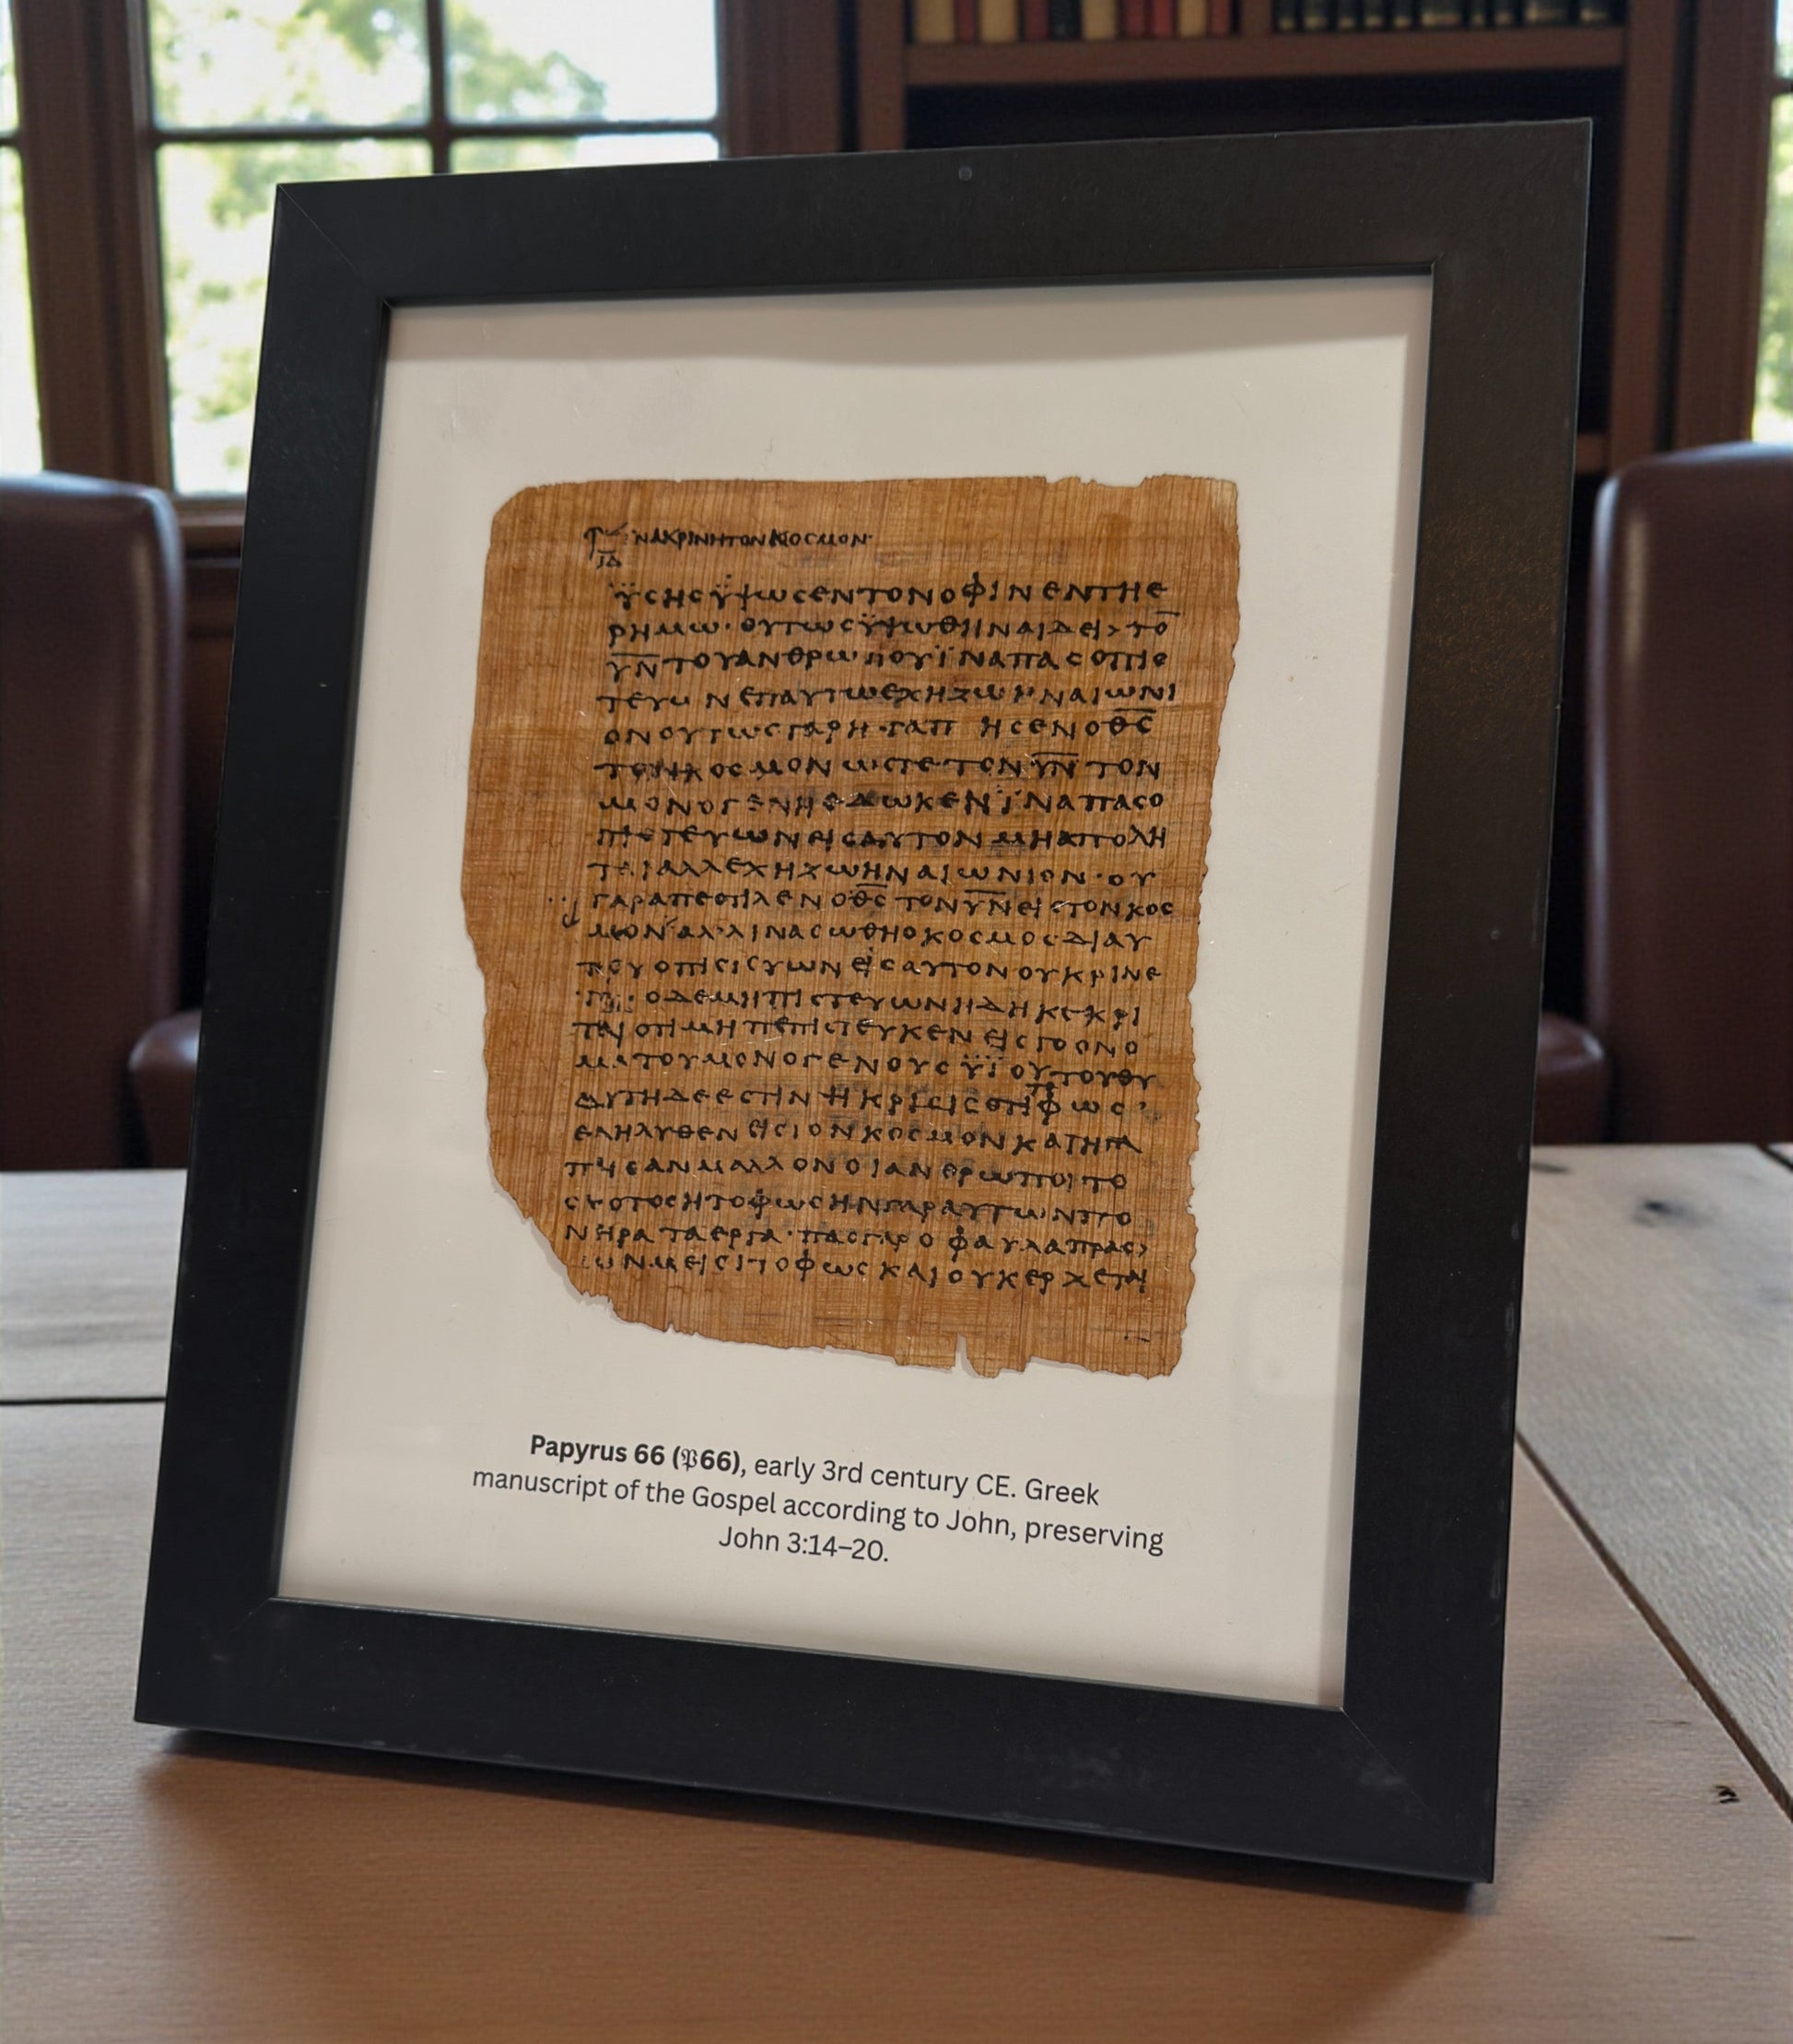 ϊΝΑΚΡΙΝΗΤΟΝΚΟCΜΟΝ·
ΙΔ
ΫCΗCΫΨωCΕΝΤΟΝΟΦΙΝΕΝΤΗΕ
ΡΗΜω·ΟΥΤωCΫΨωΘΗΝΑΙΔΕΙ>ΤΟ̅
Υ̅Ν̅ΤΟΥΑΝΘΡωΠΟΥΪΝΑΠΑCΟΠΙC
ΤΕΥωΝΕΠΑΥΤωΕΧΗΖωΗΝΑΙωΝΙ
ΟΝΟΥΤωCΓΑΡΗΓΑΠΗCΕΝΟΘ̅C̅
ΤΟΝΚΟCΜΟΝωCΤΕΤΟΝΥ̅Ν̅ΤΟΝ
ΜΟΝΟΓΕΝΗΕΔωΚΕΝΪΝΑΠΑCΟ
ΠΙCΤΕΥωΝΕΙCΑΥΤΟΝΜΗΑΠΟΛΗ
ΤΑΙΑΛΛΕΧΗΖωΗΝΑΙωΝΙΟΝ·ΟΥ
ΓΑΡΑΠΕCΤΙΛΕΝΟΘ̅C̅ΤΟΝΥ̅Ν̅ΕΙCΤΟΝΚΟC
ΜΟΝʹΑΛ·ΛΙΝΑCωΘΗΟΚΟCΜΟCΔΙΑΥ
ΤΟΥΟΠΙCΤΕΥωΝΕΙCΑΥΤΟΝΟΥΚΡΙΝΕ
ΤΑΙ·ΟΔΕΜΗΠΙCΤΕΥωΝΗΔΗΚΕΚΡΙ
ΤΑΙΟΤΙΜΗΠΕΠΙCΤΕΥΚΕΝΕΙCΤΟΟΝΟ
ΜΑΤΟΥΜΟΝΟΓΕΝΟΥCΫΪΟΥΤΟΥΘΥ
ΑΥΤΗΔΕΕCΤΙΝΗΚΡΙCΙCΟΤΙΤΟΦωC
ΕΛΗΛΥΘΕΝΕΙCΤΟΝΚΟCΜΟΝΚΑΙΗΓΑ
ΠΗCΑΝΜΑΛΛΟΝΟΙΑΝΘΡωΠΟΙΤΟ
CΚΟΤΟCΗΤΟΦωCΗΝΓΑΡΑΥΤωΝΠΟ
ΝΗΡΑΤΑΕΡΓΑ·ΠΑCΓΑΡΟΦΑΥΛΑΠΡΑC>
CωΝΜΕΙCΙΤΟΦωCΚΑΙΟΥΚΕΡΧΕΤΑΙ
Papyrus 66 (𝔓66), early 3rd century CE. Greek
manuscript of the Gospel according to John, preserving
John 3:14–20.